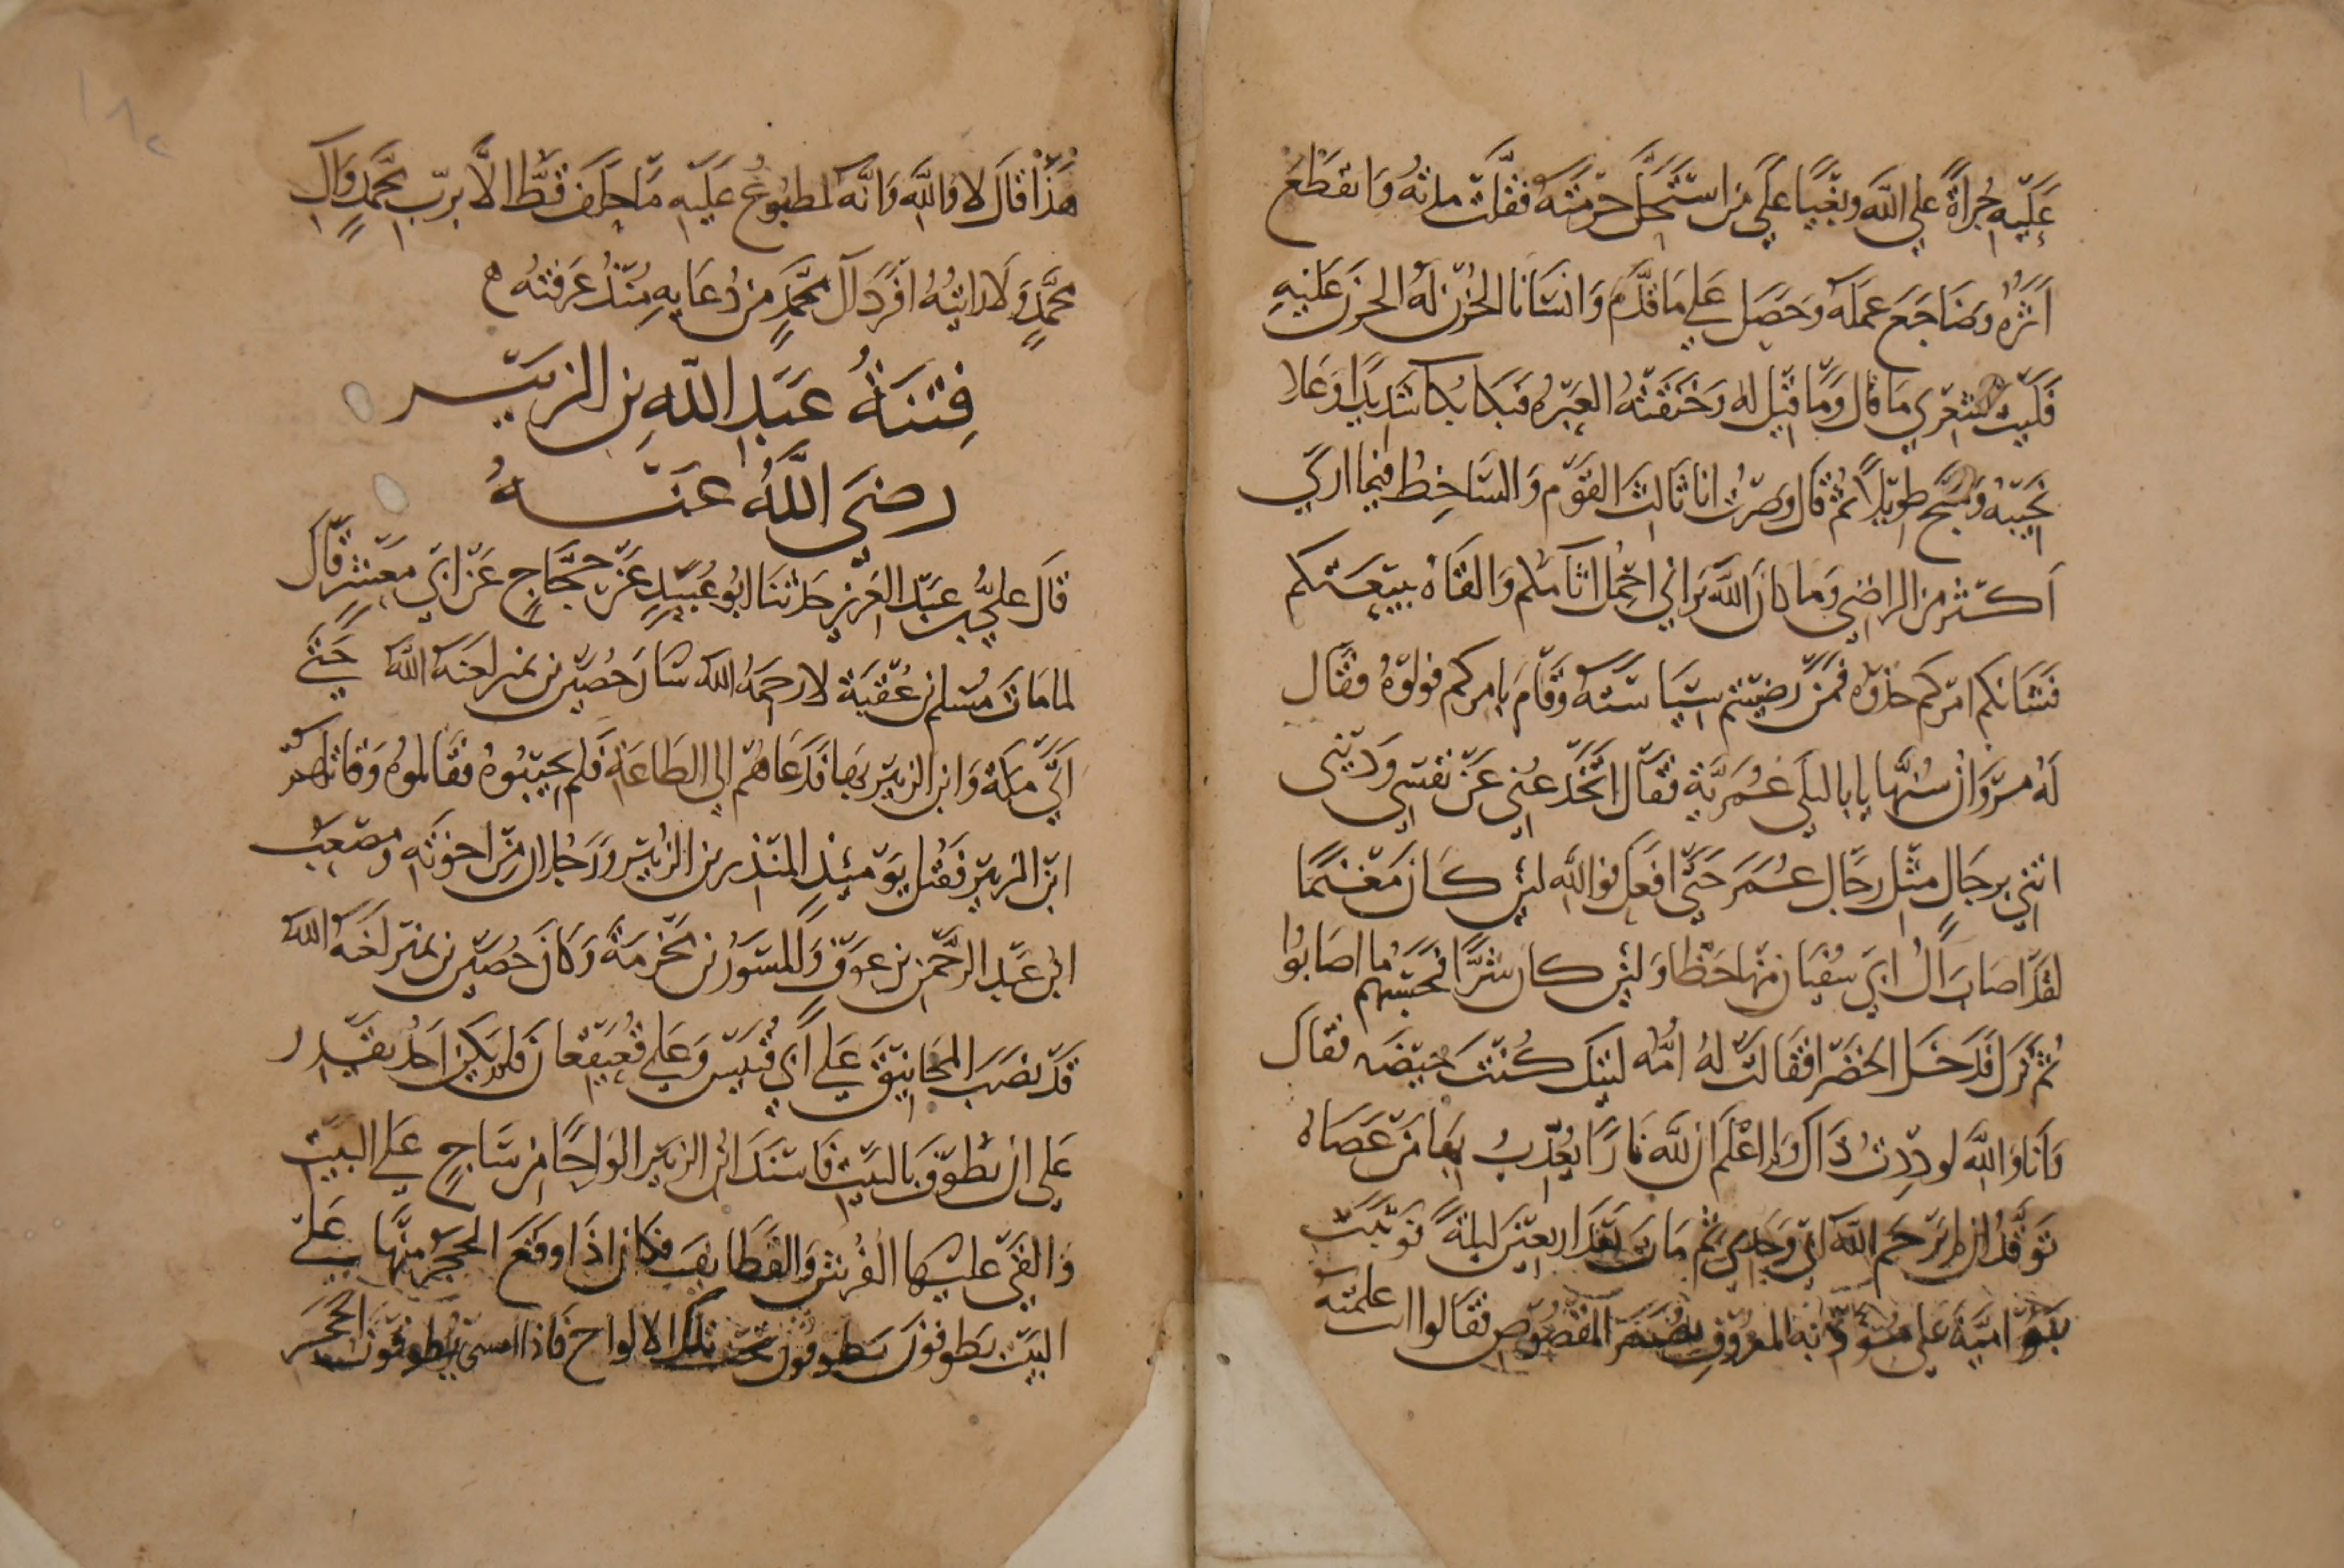 عَلَيْهِ جُرْأَةً عَلَى اللَّهِ وَبَغْيًا عَلَى مَنِ اسْتَحَلَّ حُرْمَتَهُ فَقَلَّتْ مدتهُ وَانقَطَعَ
أَثَرُهُ وَضَاجَعَ عَمَلَهُ وَحَصَلَ عَلَى مَا قَدَّمَ وَانسَانَا الحُزْن لَهُ الحزن عَلَيْهِ
فَلَيْتَ شِعْرِي مَا قَالَ وَمَا قِيلَ لَهُ وَخَنَقَتْهُ العَبْرَةُ فَبَكَا بُكا شَدِيدًا وَعَلا
نَحِيبُهُ وَسَبَّحَ طَوِيلاً ثُمَّ قَالَ وَصِرْتُ انا ثَالِثَ القَوْمِ وَالسَّاخِطُ فِيمَا ارَي
أَكْثَرُ مِنَ الرَاضِي وَمَا كانَ اللَّهُ يَرَانِي احْتَمِلُ اثَامَكُم وَالقَاهُ بِبَيْعَتِكم
فَشَانكم امْرَكم خُذُوه فَمَنْ رَضِيتُم سِيَاسَتَهُ وَقَامَ بِامْرِكم فولّوْهُ فقَال
لَهُ مَرْوَانُ سُنَّهَا يابَا لَيلَى عُمَرِيَّةٍ فقَالَ اتَخْدَعُنِي عَنْ نَفْسِي وَدَيْنِى
ائتني بِرِجَالٍ مِثْلِ رِجَالِ عُمَرَ حَتَّى افْعَلَ فوَاللَّهِ لَئِن كَانَ مَغْنَمًا
لَقَدْ اصَابَ آلُ ابِي سُفْيَان مِنْهَا حَظًا وَلَئِن كانَ شَرًّا فَحَسْبُهم مَا اصَابُوا
ثُمَّ نَزَلَ فَدَخَلَ الخَضْرَا فَقَالَتْ لَهُ امُّه لَيْتَكَ كُنْتَ حَيْضَه فقَال
وَأَنَا وَاللَّهِ لَوَدِدْتُ ذَاكَ وَلَمْ اعْلَم ان للَّهِ نَارًا يُعَذِّبُ بِهَا مَنْ عَصَاهُ
ان لم يَرْحَم اللَّه ابِي وَجَدِّي ثُمَّ مَاتَ بَعْدَ اربَعِينَ لَيْلَةً فوَثَبَت
بَنُو امَيَّةَ عَلَى مُؤَدِّبِه المعْرُوفِ المَقْصُوصِ فَقَالُوا انت علمتَه
هَذَا قَالَ لا وَاللَّهِ وَانَّهُ لمَطْبُوعٌ عَلَيْهِ مَا حَلَفَ قَطُّ الَّا بِرَبِّ مُحَمَّدٍ وَالِ
مُحَمَّدٍ وَلَا رايْتُهُ افْرَدَ آلَ مُحَمَّدٍ مِن دُعَايِهِ مُنْذُ عَرَفْتُه ه
فِتْنَةُ عَبْدِ اللَّهِ بن الزبَيْر
رَضِيَ اللَّهُ عَنْهُ
قَالَ عَليُّ بْن عَبْد العَزِيزِ حَدثنَا ابُو عُبَيْدٍ عَنْ حَجَّاجٍ عَنْ ابِي مَعْشَرٍ قَالَ
لما مَاتَ مُسْلِم بن عُقْبَة لا رَحِمَهُ اللَّه سَارَ حُصَيْن بن نمَير لَعَنَهُ اللَّه حَتَّى
أَتَى مَكَّةَ وَابن الزبَيْرِ بِهَا فَدَعَاهُم الي الطَاعَةِ فَلَم يُجِيبُوهُ فقَاتلُوهُ وَقَاتَلَهُم
ابْن الزبَيْرِ فَقُتِلَ يَوْمَئِذٍ المُنْذِر بن الزُبَيْر وَرَجُلَان مِنْ اخْوَتِه وَمصْعَب
ابْن عَبْد الرَّحْمَن بن عَوْفٍ وَالمِسْوَرُ بْن مَخْرَمَةَ وَكَانَ حُصَيْن بن نمَير لَعَنَهُ اللَّه
قَدْ نَصَبَ المَجَانِيقَ عَلَى أَبِي قُبَيْس وَعَلَى قُعَيْقِعَان فَلَم يَكُن احَدٌ يَقْدِر
عَلَى ان يَطُوفَ بِالبَيْتِ فَاسْنَدَ ابْن الزبَيْر الوَاحًا مِن سَاجٍ عَلَى البَيْتِ
وَالقَى عَلَيْهَا الفُرُشَ وَالقَطَايفَ فَكَان اذَا وَقَعَ الحَجَرُ مِنْهَا عَلَى
البَيْت يَطوفونَ يَطوفُونَ تحْتَ تِلْكَ الالواح فَاذَا الحَجَر